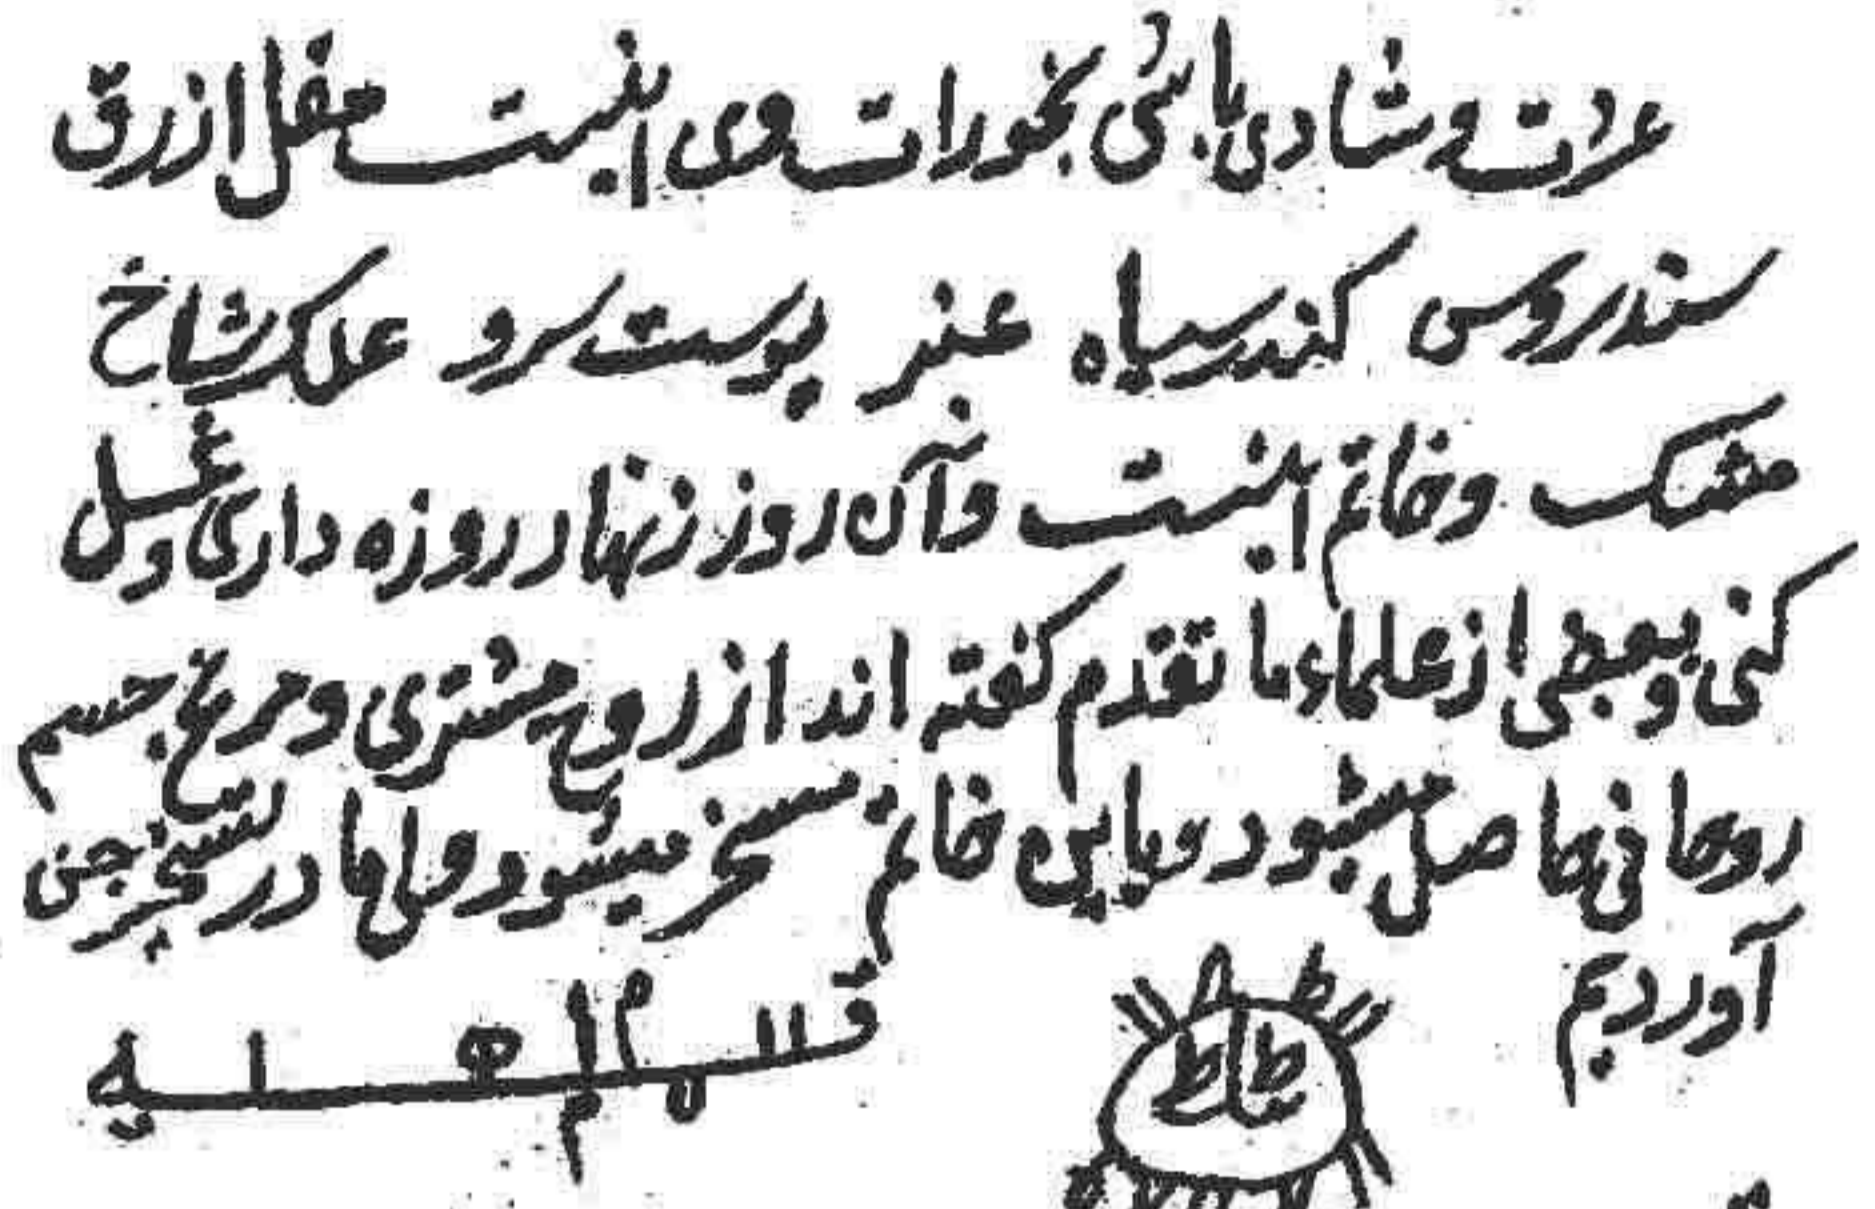 عزت و شادی باشی بخورات وی اینست مقل ازرق
سندروس کندر سیاه عنبر پوست سرو علک شاخ
مشک و خاتم اینست و آن روز زنهار روزه داری و غسل
کنی و بعضی از علماء ما تقدم گفته اند از روح مشتری و مریخ جسم
روحانی حاصل میشود و باین خاتم مسخر میشود و ما در تسخیر جن
آوردیم